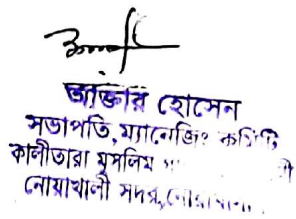 আক্তার হোসেন
সভাপতি, ম্যানেজিং কমিটি
কালীতারা মুসলিম
নোয়াখালী সদর, নোয়াখালী